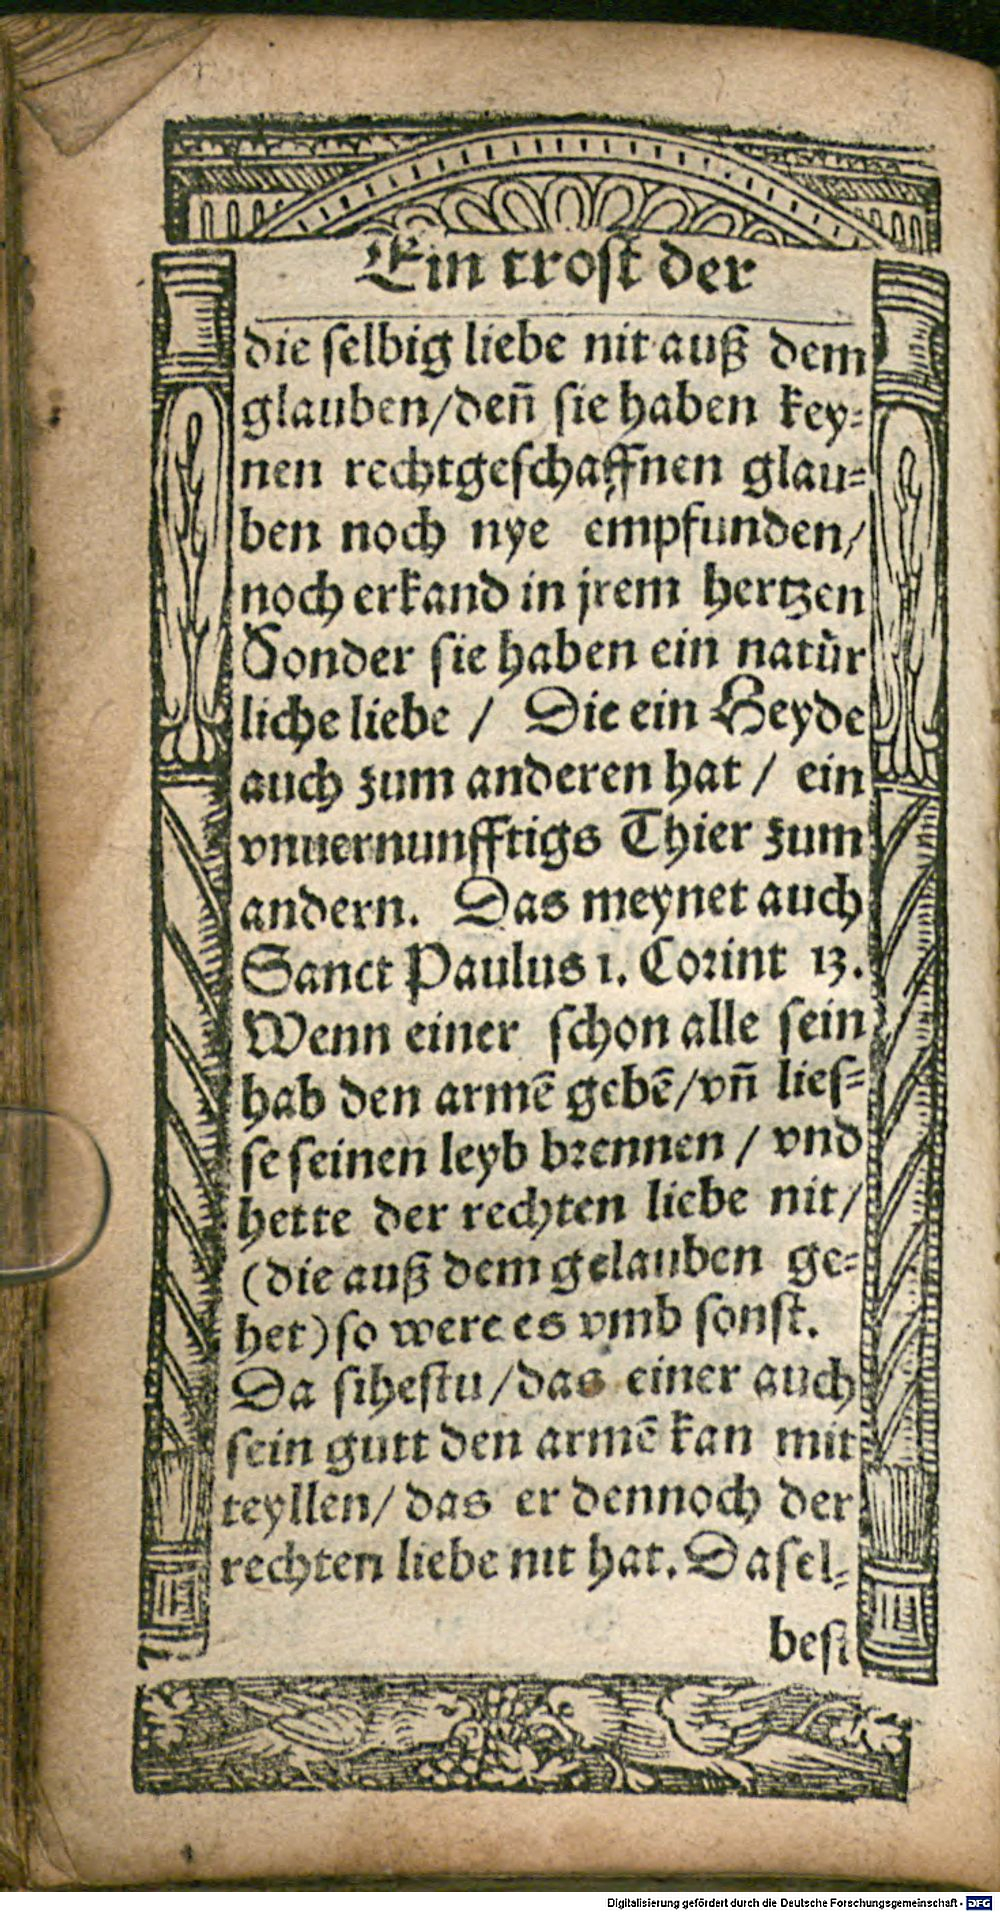 Ein trost der
die selbig liebe nit auß dem
glauben/denñ sie haben key⸗
nen rechtgeschaffnen glau⸗
ben noch nye empfunden/
noch erkand in jrem hertzen
Sonder sie haben ein natür
liche liebe / Die ein Heyde
auch zum anderen hat / ein
vnuernunfftigs Thier zum
andern. Das meynet auch
Sanct Paulus 1. Corint 13.
Wenn einer schon alle sein
hab den armē gebē/vñ lies⸗
se seinen leyb brennen / vnd
hette der rechten liebe nit/
(die auß dem gelauben ge⸗
het) so were es vmb sonst.
Da sihestu/das einer auch
sein gutt den armē kan mit
teyllen/ das er dennoch der
rechten liebe nit hat. Dasel⸗
best
Digitalisierung gefördert durch die Deutsche Forschungsgemeinschaft - DFG